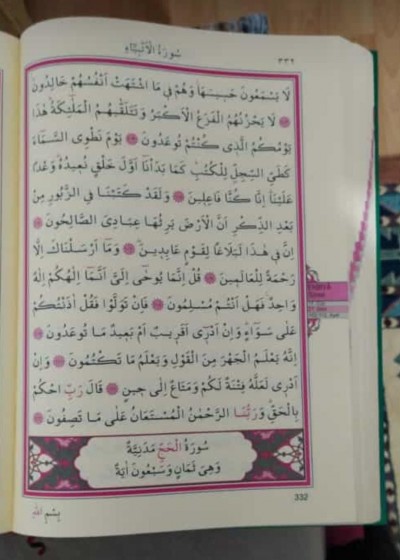 سُورَةُ الْاَنْبِيَاءِ
٣٣٢
لَا يَسْمَعُونَ حَسِيسَهَا وَهُمْ فِي مَا اشْتَهَتْ اَنْفُسُهُمْ خَالِدُونَ
لَا يَحْزُنُهُمُ الْفَزَعُ الْاَكْبَرُ وَتَتَلَقّٰيهُمُ الْمَلٰٓئِكَةُ هٰذَا
يَوْمُكُمُ الَّذِي كُنْتُمْ تُوعَدُونَ يَوْمَ نَطْوِي السَّمَاءَ
كَطَيِّ السِّجِلِّ لِلْكُتُبِ كَمَا بَدَأْنَا اَوَّلَ خَلْقٍ نُعِيدُهُ وَعْدًا
عَلَيْنَا اِنَّا كُنَّا فَاعِلِينَ وَلَقَدْ كَتَبْنَا فِي الزَّبُورِ مِنْ
بَعْدِ الذِّكْرِ اَنَّ الْاَرْضَ يَرِثُهَا عِبَادِيَ الصَّالِحُونَ
اِنَّ فِي هٰذَا لَبَلَاغًا لِقَوْمٍ عَابِدِينَ وَمَا اَرْسَلْنَاكَ اِلَّا
رَحْمَةً لِلْعَالَمِينَ قُلْ اِنَّمَا يُوحٰى اِلَيَّ اَنَّمَا اِلٰهُكُمْ اِلٰهٌ
وَاحِدٌ فَهَلْ اَنْتُمْ مُسْلِمُونَ فَاِنْ تَوَلَّوْا فَقُلْ اٰذَنْتُكُمْ
عَلٰى سَوَاءٍ وَاِنْ اَدْرِي اَقَرِيبٌ اَمْ بَعِيدٌ مَا تُوعَدُونَ
اِنَّهُ يَعْلَمُ الْجَهْرَ مِنَ الْقَوْلِ وَيَعْلَمُ مَا تَكْتُمُونَ وَاِنْ
اَدْرِي لَعَلَّهُ فِتْنَةٌ لَكُمْ وَمَتَاعٌ اِلٰى حِينٍ قَالَ رَبِّ احْكُمْ
بِالْحَقِّ وَرَبُّنَا الرَّحْمٰنُ الْمُسْتَعَانُ عَلٰى مَا تَصِفُونَ
سُورَةُ الْحَجِّ مَدَنِيَّةٌ
وَهِيَ ثَمَانٍ وَسَبْعُونَ اٰيَةً
332
بِسْمِ اللّٰهِ